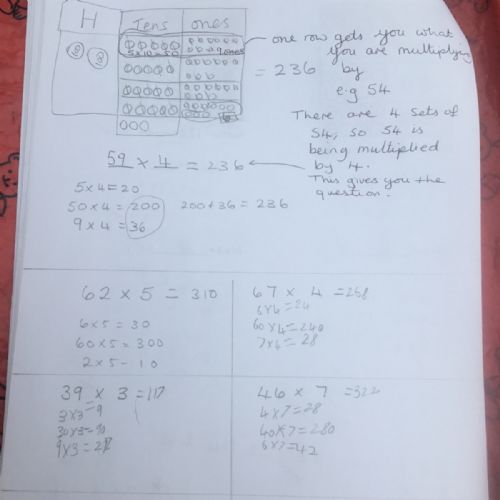 H Tens ones
5x10=50 9ones
one row gets you what
you are multiplying
= 236 by
e.g 54
There are 4 sets of
54, so 54 is
being multiplied
by 4.
This gives you the
question.
59 x 4 = 236
5x4=20
50x4=200 200+36=236
9x4=36
62 x 5 = 310
6x5=30
60x5=300
2x5=10
67 x 4 =268
6x4=24
60x4=240
7x4=28
39 x 3=117
3x3=9
30x3=90
9x3=27
46 x 7 =322
4x7=28
40x7=280
6x7=42